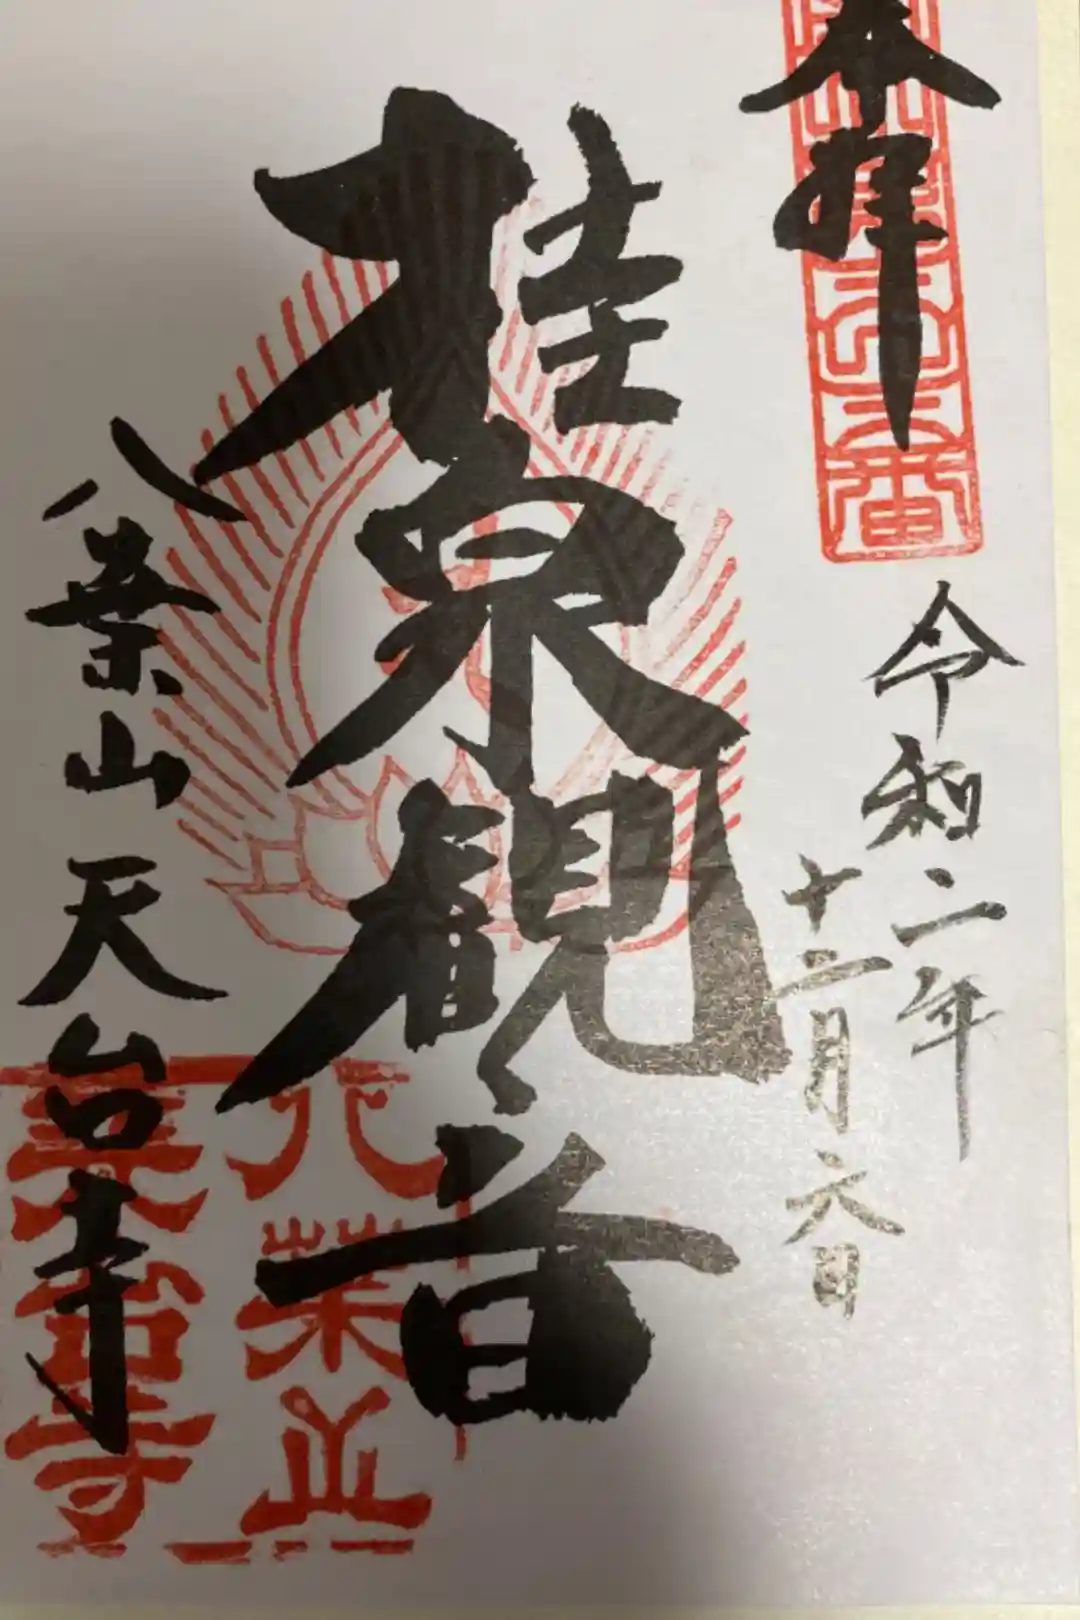 奉拝
令和二年
十二月六日
桂泉観音
八葉山 天台寺
八葉山
天台寺